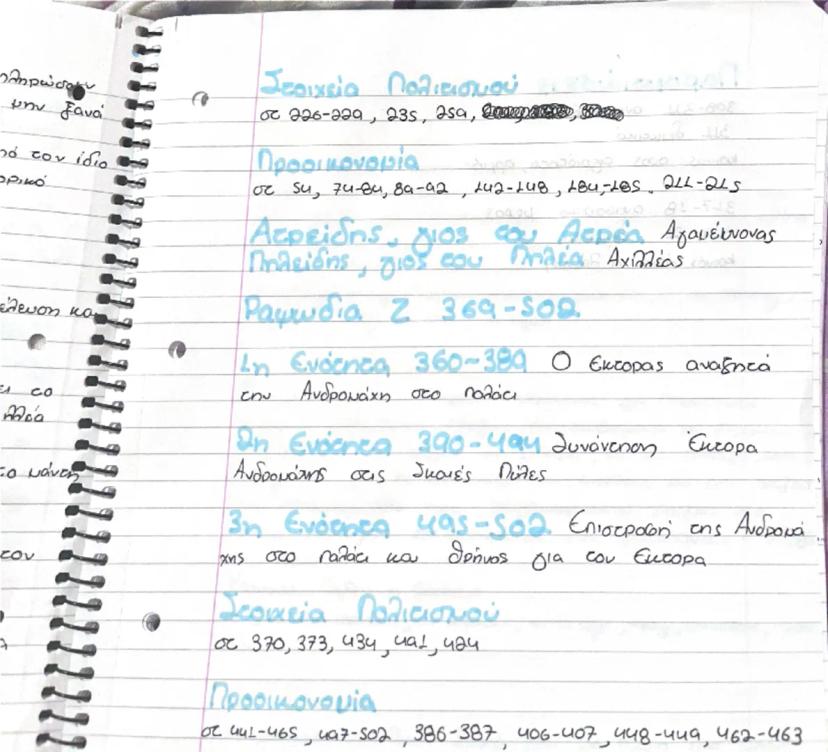 πληρώσουν
μην ξανά
πό τον ίδιο
έλευση και
Στοιχεία Πολιτισμού
στ 226-229, 235, 259,
Προοικονομία
στ 54, 74-84, 89-92, 142-148, 184-185, 211-215
Ατρείδης, γιος του Ατρέα Αγαμέμνονας
Πηλείδης, γιος του Πηλέα Αχιλλέας
Ραψωδία Ζ 369-502
1η Ενότητα 360-389 Ο Έκτορας αναζητά
την Ανδρομάχη στο παλάτι
2η Ενότητα 390-494 Συνάντηση Έκτορα
Ανδρομάχης στις Σκαιές Πύλες
3η Ενότητα 495-502 Επιστροφή της Ανδρομά
χης στο παλάτι και θρήνος για τον Έκτορα
Στοιχεία Πολιτισμού
στ 370, 373, 434, 491, 424
Προοικονομία
στ 441-465, 497-502, 386-387, 406-407, 448-449, 462-463